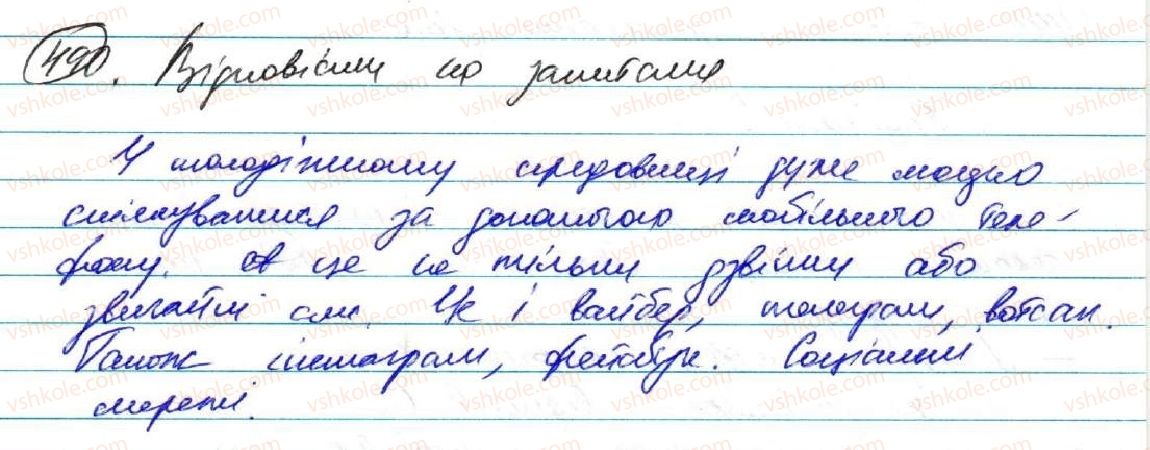 490. Відповісти на запитання
У молодіжному середовищі дуже модно
спілкуватися за допомогою мобільного теле-
фону. А це не тільки дзвінки або
звичайні смс. Це і вайбер, телеграм, вотсап.
Також інстаграм, фейсбук. Соціальні
мережі.